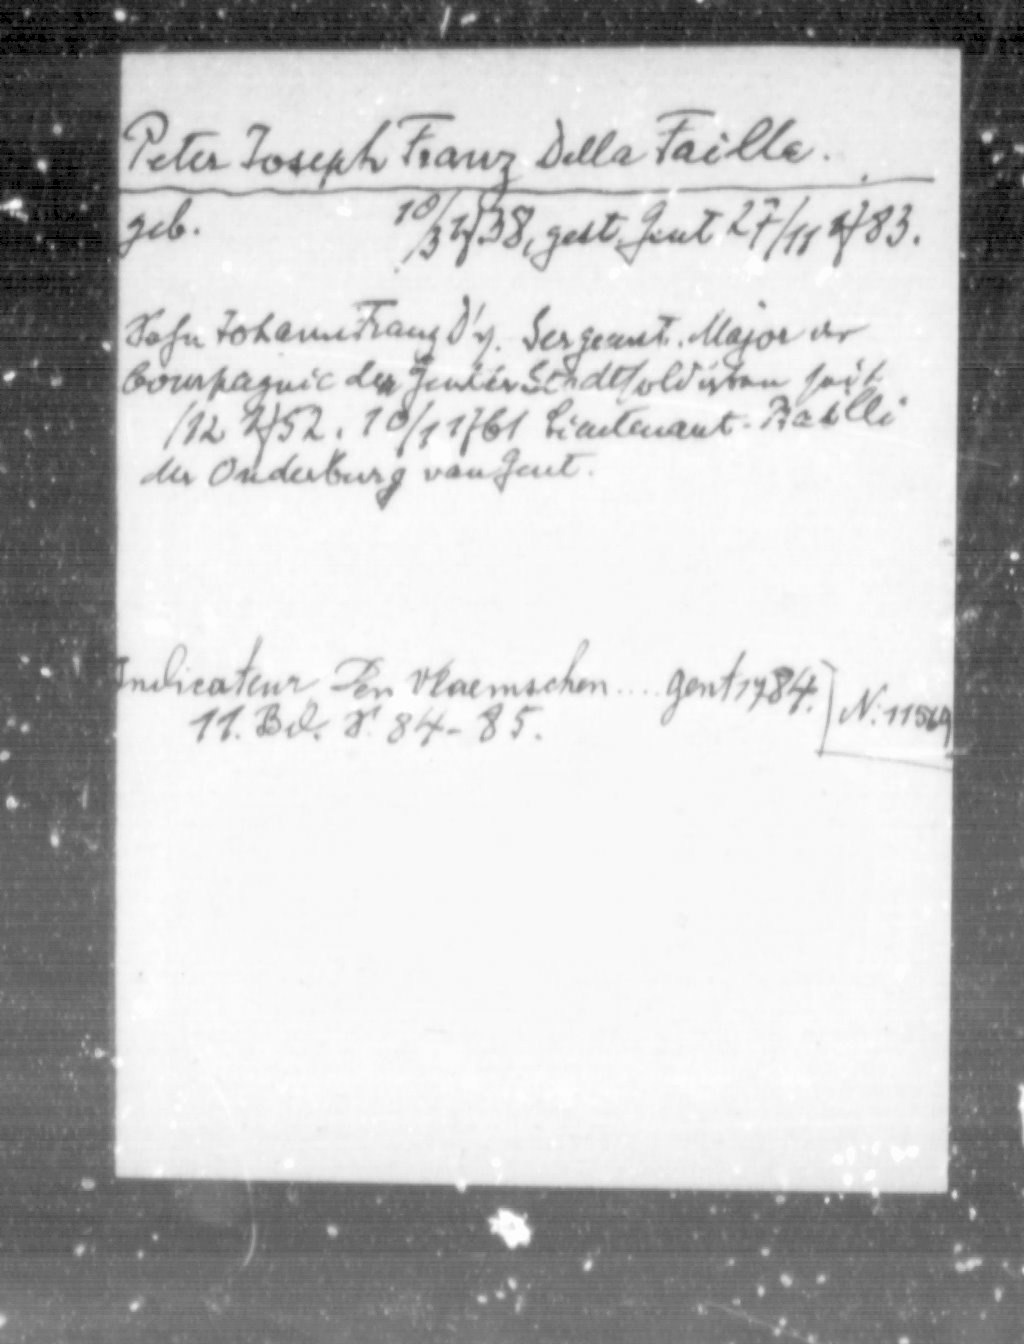 Peter Joseph Franz Della Faille.
geb. 10/3 1738, gest. Gent 27/11 1783.
Sohn Johann Franz D's. Sergeant-Major der
Compagnie der Genter Stadtsoldaten seit
/12 1752. 10/1 1761 Lieutenant-Bailli
der Onderburg van Gent.
Indicateur Den Vlaemschen .... Gent 1784.
11. Bd. S. 84-85.
N. 11569